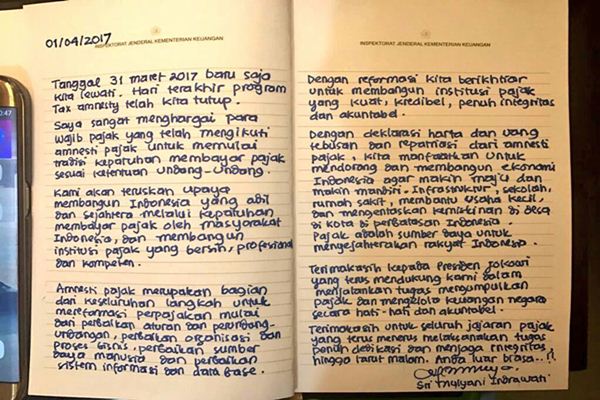 0:47
INSPEKTORAT JENDERAL KEMENTERIAN KEUANGAN
01/04/2017
Tanggal 31 maret 2017 baru saja
kita lewati. Hari terakhir program
Tax amnesty telah kita tutup.
Saya sangat menghargai para
wajib pajak yang telah mengikuti
amnesti pajak untuk memulai
tradisi kepatuhan membayar pajak
sesuai ketentuan undang-undang.
Kami akan teruskan upaya
membangun Indonesia yang adil
dan sejahtera melalui kepatuhan
membayar pajak oleh masyarakat
Indonesia, dan membangun
institusi pajak yang bersih, profesional
dan kompeten.
Amnesti pajak merupakan bagian
dari keseluruhan langkah untuk
mereformasi perpajakan mulai
dari perbaikan aturan dan perundang-
undangan, perbaikan organisasi dan
proses bisnis, perbaikan sumber
daya manusia dan perbaikan
sistem informasi dan data base.
INSPEKTORAT JENDERAL KEMENTERIAN KEUANGAN
Dengan reformasi kita berikhtiar
untuk membangun institusi pajak
yang kuat, kredibel, penuh integritas
dan akuntabel.
Dengan deklarasi harta dan uang
tebusan dan repatriasi dari amnesti
pajak, kita manfaatkan untuk
mendorong dan membangun ekonomi
Indonesia agar makin maju dan
makin mandiri. Infrastruktur, sekolah,
rumah sakit, membantu usaha kecil,
dan mengentaskan kemiskinan di desa
di kota di perbatasan Indonesia.
Pajak adalah sumber daya untuk
menyejahterakan rakyat Indonesia.
Terimakasih kepada Presiden Jokowi
yang terus mendukung kami dalam
menjalankan tugas mengumpulkan
pajak dan mengelola keuangan negara
secara hati-hati dan akuntabel.
Terimakasih untuk seluruh jajaran pajak
yang terus menerus melaksanakan tugas
penuh dedikasi dan menjaga integritas
hingga larut malam. Anda luar biasa..!!
Sri Mulyani Indrawati